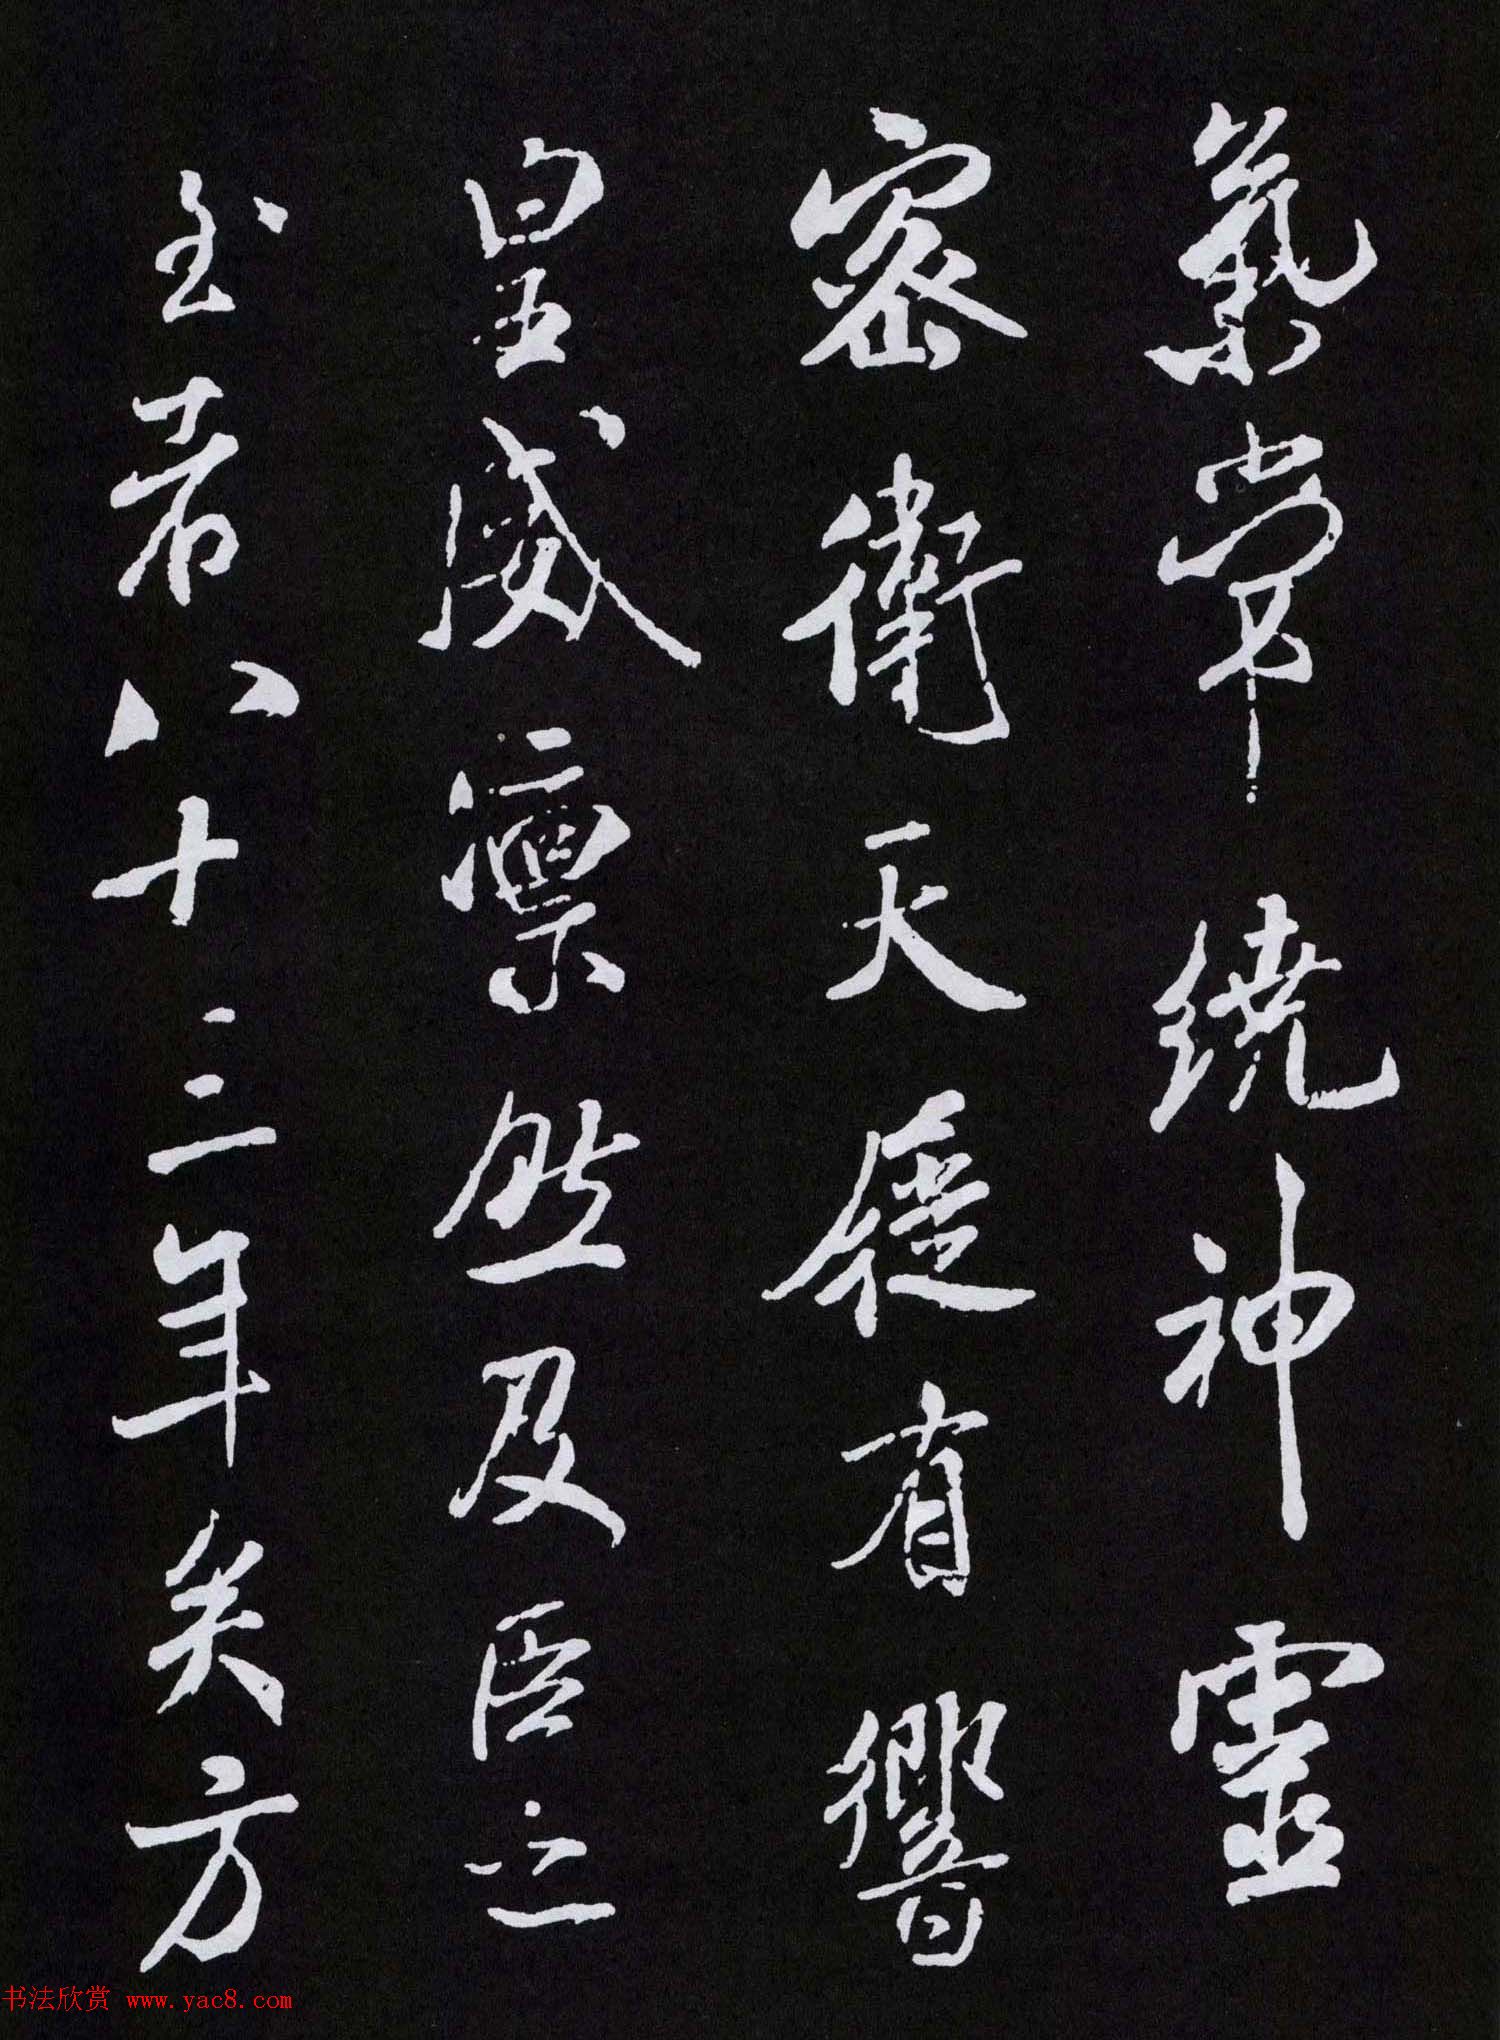 氣常繞神靈
密衛天徒有響
皇威凛然及臣之
至者八十三年矣方
书法欣赏 www.yac8.com